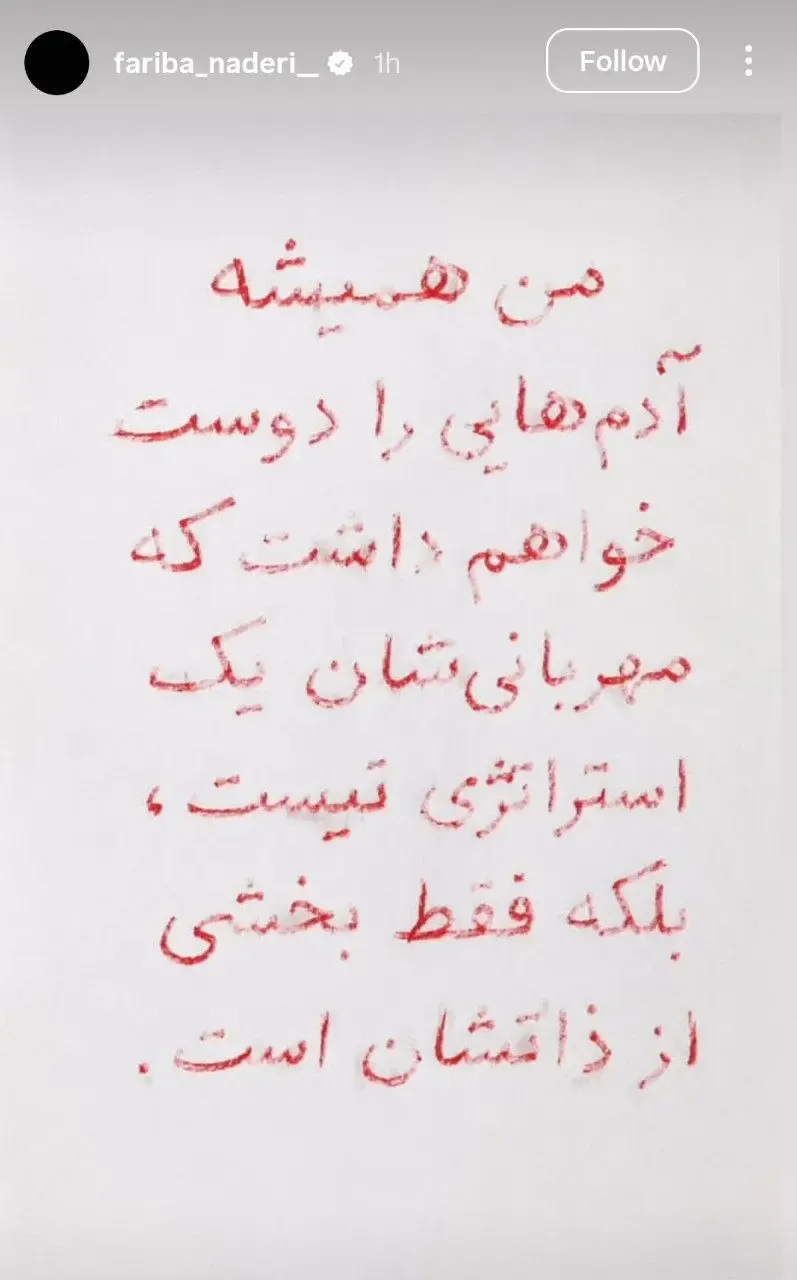 fariba_naderi__ 1h Follow
من همیشه
آدم‌هایی را دوست
خواهم داشت که
مهربانی‌شان یک
استراتژی نیست،
بلکه فقط بخشی
از ذاتشان است.